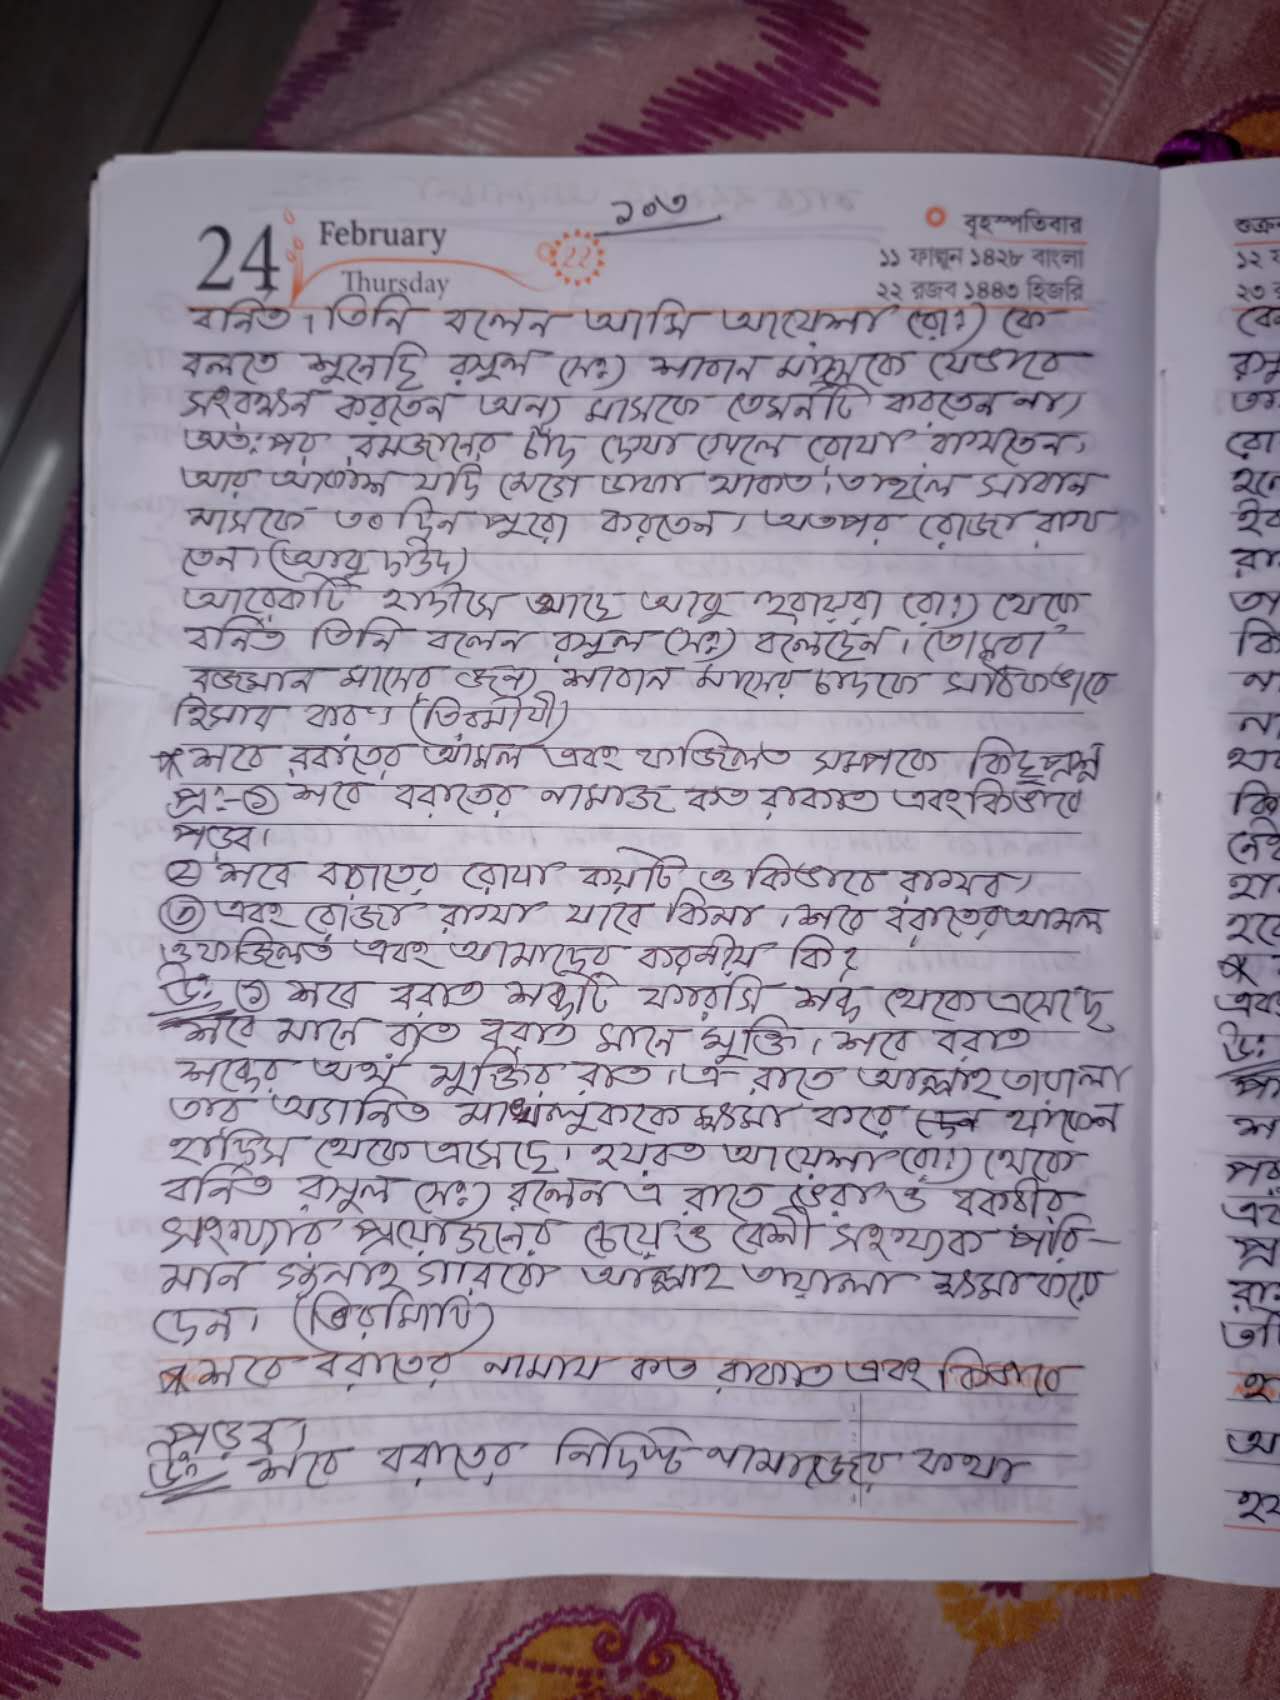 ১০৩
24 February
Thursday
22
বৃহস্পতিবার
১১ ফাল্গুন ১৪২৮ বাংলা
২২ রজব ১৪৪৩ হিজরি
বর্নিত। তিনি বলেন আমি আয়েশা (রাঃ) কে
বলতে শুনেছি রসুল (সঃ) শাবান মাসকে যেভাবে
সংরক্ষন করতেন অন্য মাসকে তেমনটি করতেন না।
অতঃপর রমজানের চাঁদ দেখা গেলে রোযা রাখতেন।
আর আকাশ যদি মেঘে ঢাকা থাকত। তাহলে সাবান
মাসকে ৩০ দিন পুরো করতেন। অতপর রোজা রাখ
তেন। (আবু দাউদ)
আরেকটি হাদীসে আছে আবু হুরায়রা (রাঃ) থেকে
বর্নিত তিনি বলেন রসুল (সঃ) বলেছেন। তোমরা
রজমান মাসের জন্য শাবান মাসের চাদকে সঠিকভাবে
হিসাব কর। (তিরমীযী)
শবে বরাতের আমল এবং ফাজিলত সমপকে কিছু প্রশ্ন
প্র:-১ শবে বরাতের নামাজ কত রাকাত এবং কিভাবে
পড়ব।
২ শবে বরাতের রোযা কয়টি ও কিভাবে রাখব।
৩ এবং রোজা রাখা যাবে কিনা। শবে বরাতের আমল
ও ফাজিলত এবং আমাদের করনীয় কি?
উ: ১ শবে বরাত শব্দটি ফারসি শব্দ থেকে এসেছে
শবে মানে রাত বরাত মানে মুক্তি। শবে বরাত
শব্দের অর্থ মুক্তির রাত। এ রাতে আল্লাহ তায়ালা
তার অগনিত মাখলুককে ক্ষমা করে থাকেন
হাদিস থেকে এসেছে। হযরত আয়েশা (রাঃ) থেকে
বর্নিত রসুল (সঃ) বলেন এ রাতে ভেরা ও বকরীর
সংখ্যার প্রয়োজনের চেয়ে ও বেশী সংখ্যক পরি-
মান গুনাহ গারকে আল্লাহ তায়ালা ক্ষমা করে
দেন। (তিরমিযি)
শবে বরাতের নামায কত রাকাত এবং কিভাবে
পড়ব।
উ: শবে বরাতের নির্দিষ্ট নামাজের কথা